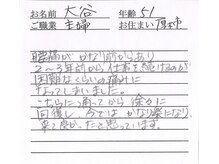 お名前 大谷 年齢 51
ご職業 主婦 お住まい 厚木市
腰痛がかなり前からあり
2〜3年前から仕事を続けるのが
困難なくらいの痛みに
なってしまいました。
こちらに通ってから徐々に
回復し、今ではかなり楽になり
来て良かったと思っています。